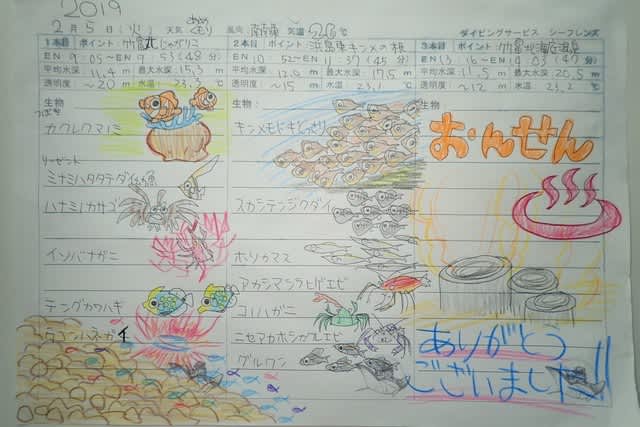 2019
2月5日(火) 天気 あめ くもり 風向 南南東 気温 26℃ ダイビングサービス シーフレンズ
1本目 ポイント 竹富丸じゃがりこ
EN 9:05〜EN 9:53(48分)
平均水深 11.4m 最大水深 15.3m
透明度 〜20m 水温 23.
生物
カクレクマノミ
ミナミハタタテダイ
ハナミノカサゴ
イソバナガニ
テングカワハギ
2本目 ポイント 浜島東キンメの根
EN 10:52〜EN 11:37(45分)
平均水深 12.0m 最大水深 17.5m
透明度 〜15m 水温 23.1℃
生物
キンメモドキどっさり
スカシテンジクダイ
ホソカマス
アカシマシラヒゲエビ
コノハガニ
ニセアカホシカクレエビ
グルクン
3本目 ポイント 竹富北海底温泉
EN 13:16〜EN 14:03(47分)
平均水深 11.5m 最大水深 20.5m
透明度 〜12m 水温 23.2℃
生物
おんせん
ありがとう
ございました!!